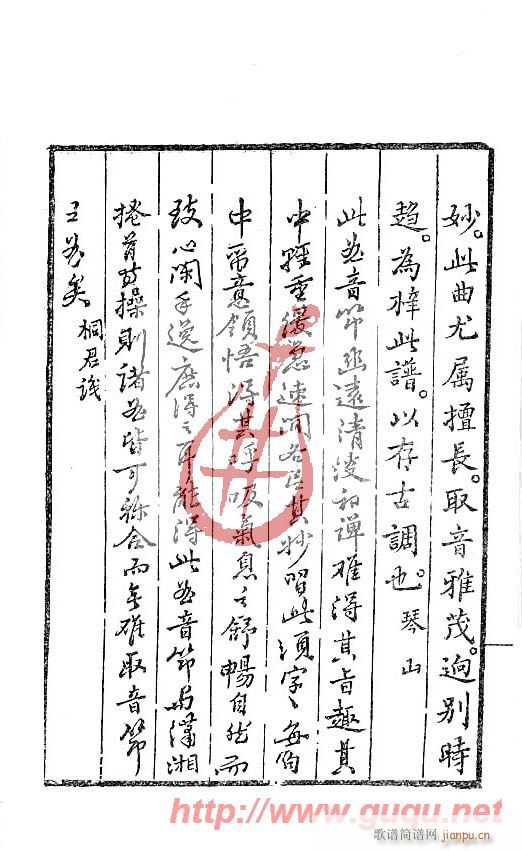 妙。此曲尤属擅長。取音雅茂。逈别時
趋。為梓此譜。以存古調也。琴山
此㪯音節幽遠清淡和禅难得其旨趣其
中輕重緩急速间各臣其妙習此须字〻每句
中留意领悟得其呼吸氣息之舒暢自然而
玅心闲手逸庶得之耳能得此㪯音節與瀟湘
捲首曲操則諸㪯皆可發令而無难取音節
之㪯矣 桐君识
http://www.guqu.net
歌谱简谱网
jianpu.cn